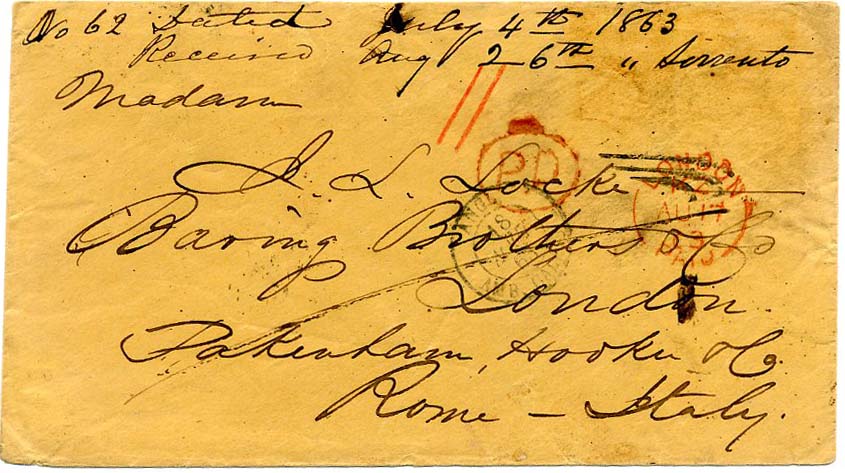 No 62 Dated July 4th 1863
Received Aug 26th " Sorrento
Madam
J. L. Locke
Baring Brothers & Co
London.
Pakenham, Hooker & Co.
Rome – Italy.
PD
LONDON
AU 17